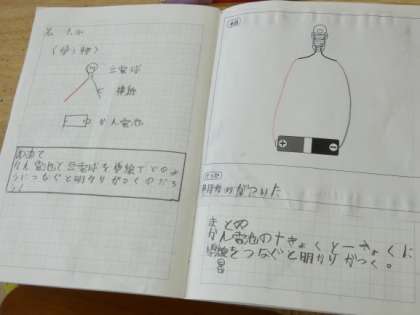 (使う物)
豆電球
導線
かん電池
かん電池と豆電球を導線でどのよ
うにつなぐと明かりがつくのだろ
+
−
明かりがついた
まとめ
かん電池の+きょくと−きょくに
導線をつなぐと明かりがつく。